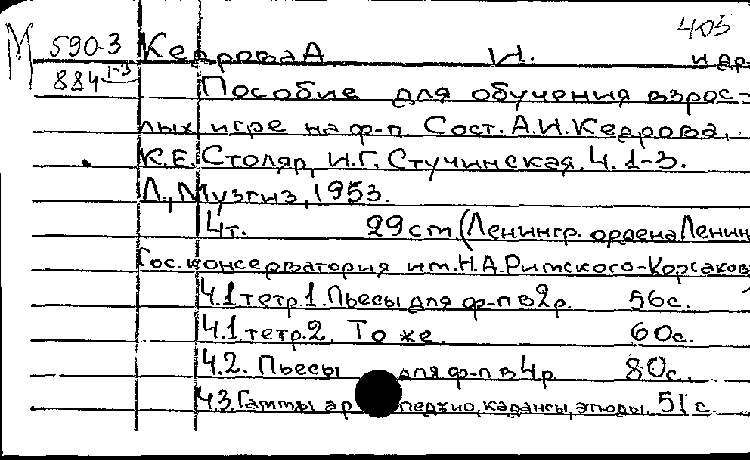 405
М 590-3 Кедрова А И. и др
884 1-3 Пособие для обучения взрос-
лых игре на ф-п. Сост. А.И.Кедрова,
К.Е.Столяр, И.Г.Стучинская. Ч.1-3.
Л., Музгиз, 1953.
4т. 29 cm (Ленингр. ордена Ленин
Гос. консерватория им. Н.А.Римского-Корсаков
Ч.1 тетр.1. Пьесы для ф-п в 2р. 56с.
Ч.1 тетр.2. То же 60с.
Ч.2. Пьесы для ф-п в 4р 80с.
Ч3. Гаммы ар педжио, кадансы, этюды. 51с